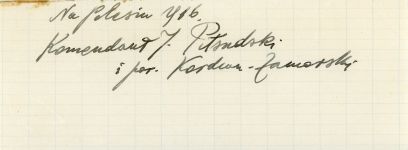 Na Polesiu 1916.
Komendant J. Piłsudski
i por. Kordian-Zamorski